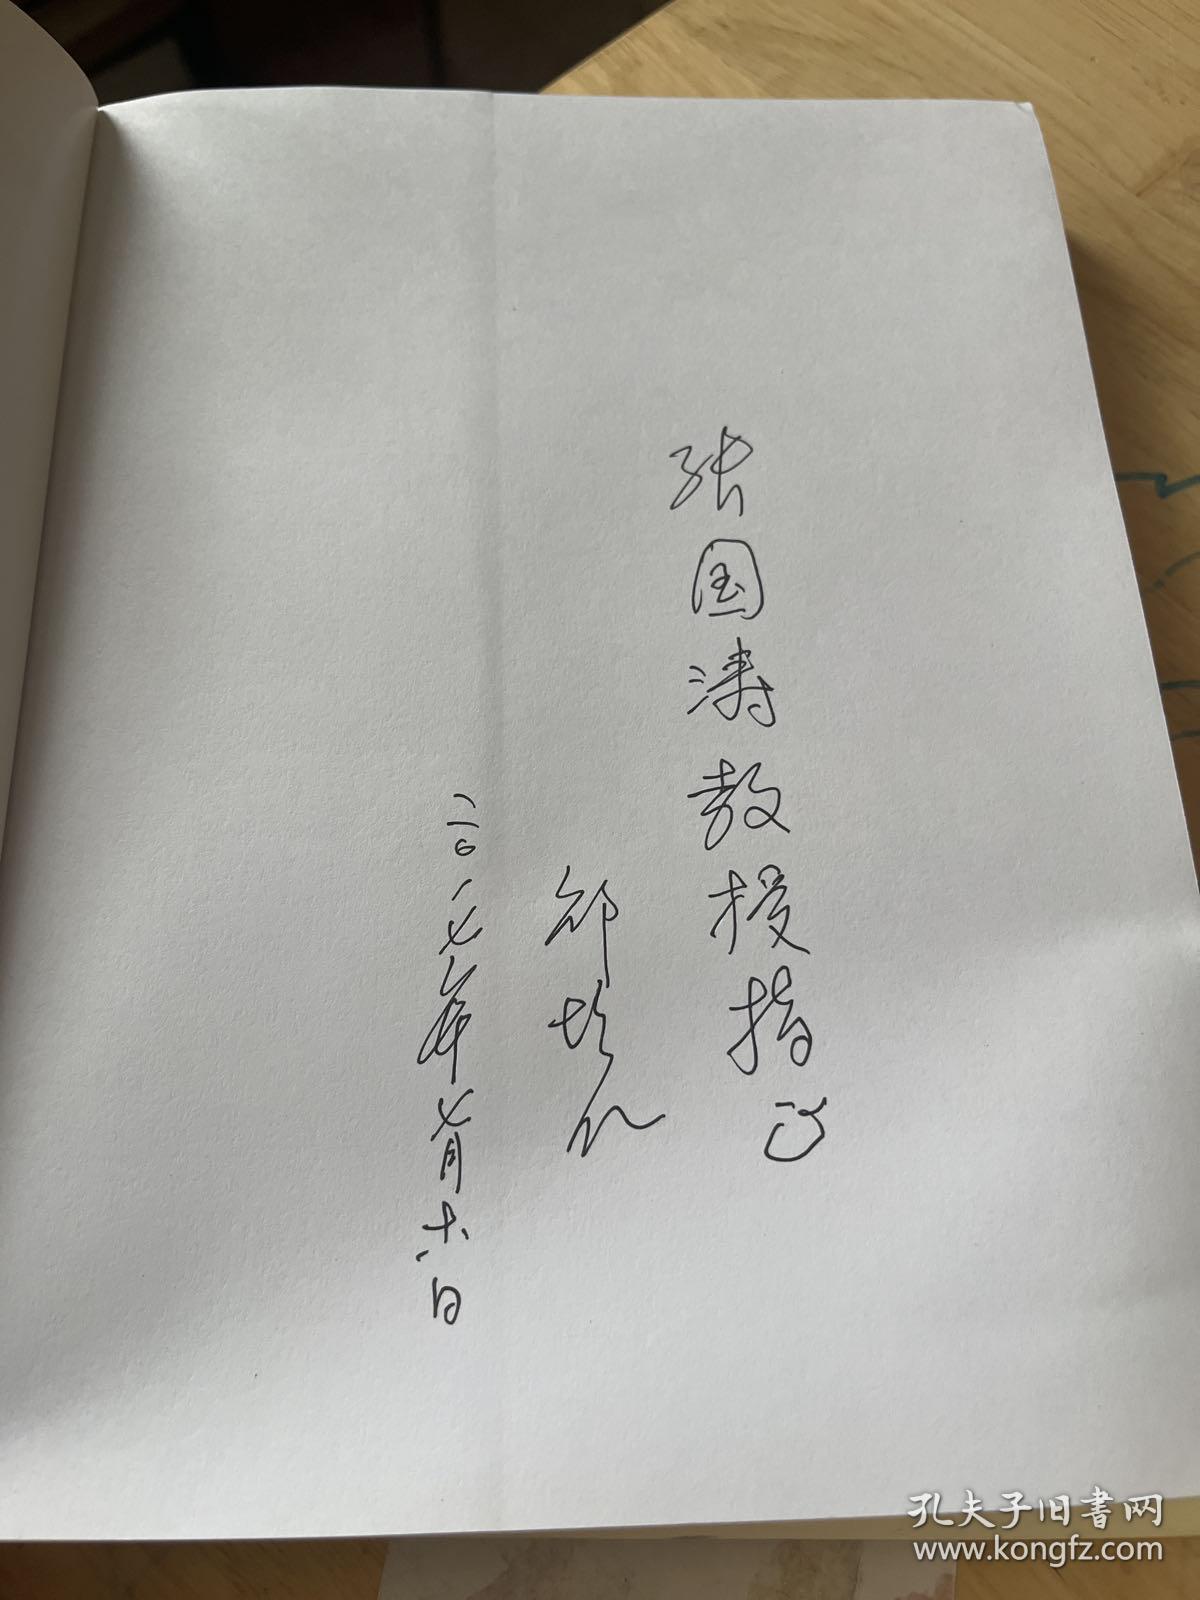 张国涛教授指正
邵培仁
二〇一七年七月六日
孔夫子旧書网
www.kongfz.com